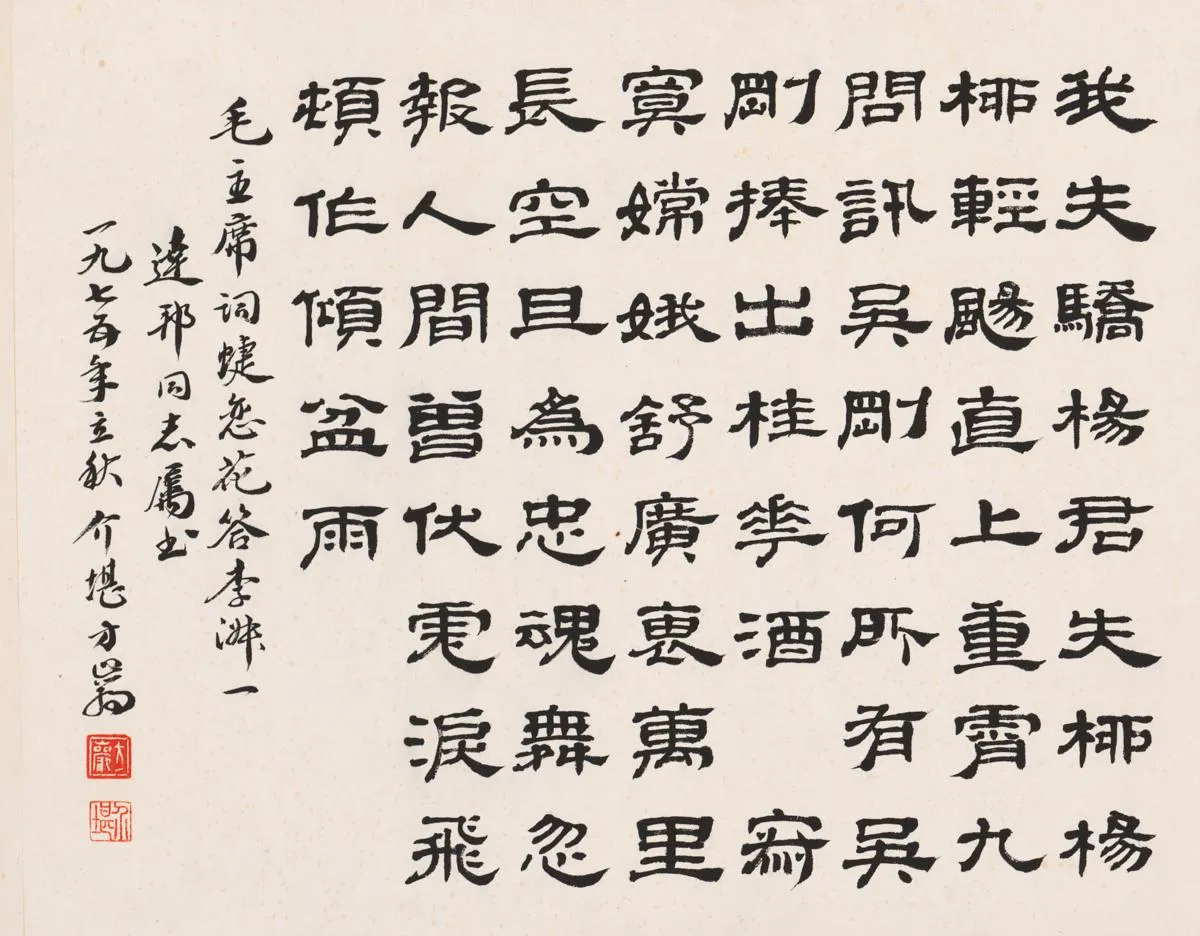 我失驕楊君失柳楊
柳輕颺直上重霄九
問訊吳剛何所有吳
剛捧出桂花酒　寂
寞嫦娥舒廣袖萬里
長空且為忠魂舞忽
報人間曾伏虎淚飛
頓作傾盆雨
毛主席词蝶恋花答李淑一
達邦同志屬书
一九七五年立秋介堪方巖
方巖
介堪